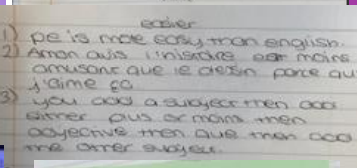 easier
1) pe is more easy than english.
2) A mon avis l'histoire est moins
amusant que le dessin parce qu
j'aime ça
3) you add a subject then add
either plus or moins then
adjective then que then add
the other subject.